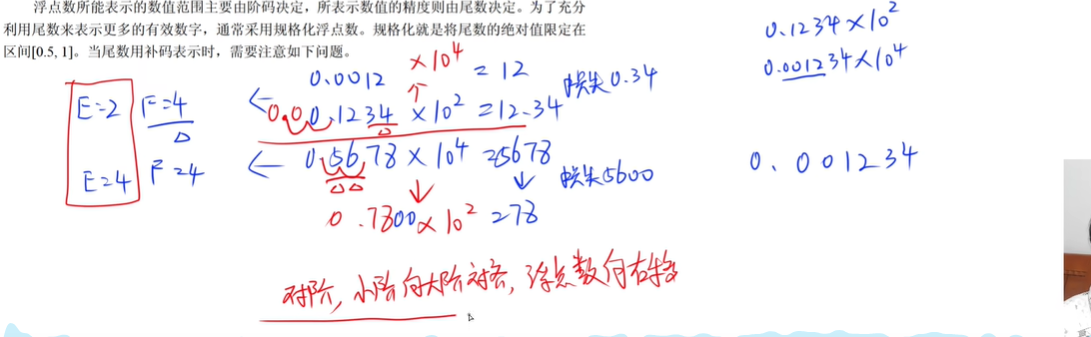 浮点数所能表示的数值范围主要由阶码决定，所表示数值的精度则由尾数决定。为了充分
利用尾数来表示更多的有效数字，通常采用规格化浮点数。规格化就是将尾数的绝对值限定在
区间[0.5, 1]。当尾数用补码表示时，需要注意如下问题。
0.1234×10²
0.001234×10⁴
0.0012 ×10⁴ = 12
E=2 F=4
0.0 0.1234 × 10² = 12.34 损失0.34
0.5678 × 10⁴ = 5678
E=4 F=4
损失5600
0.001234
0.7800×10² = 78
对阶，小阶向大阶对齐，浮点数向右移